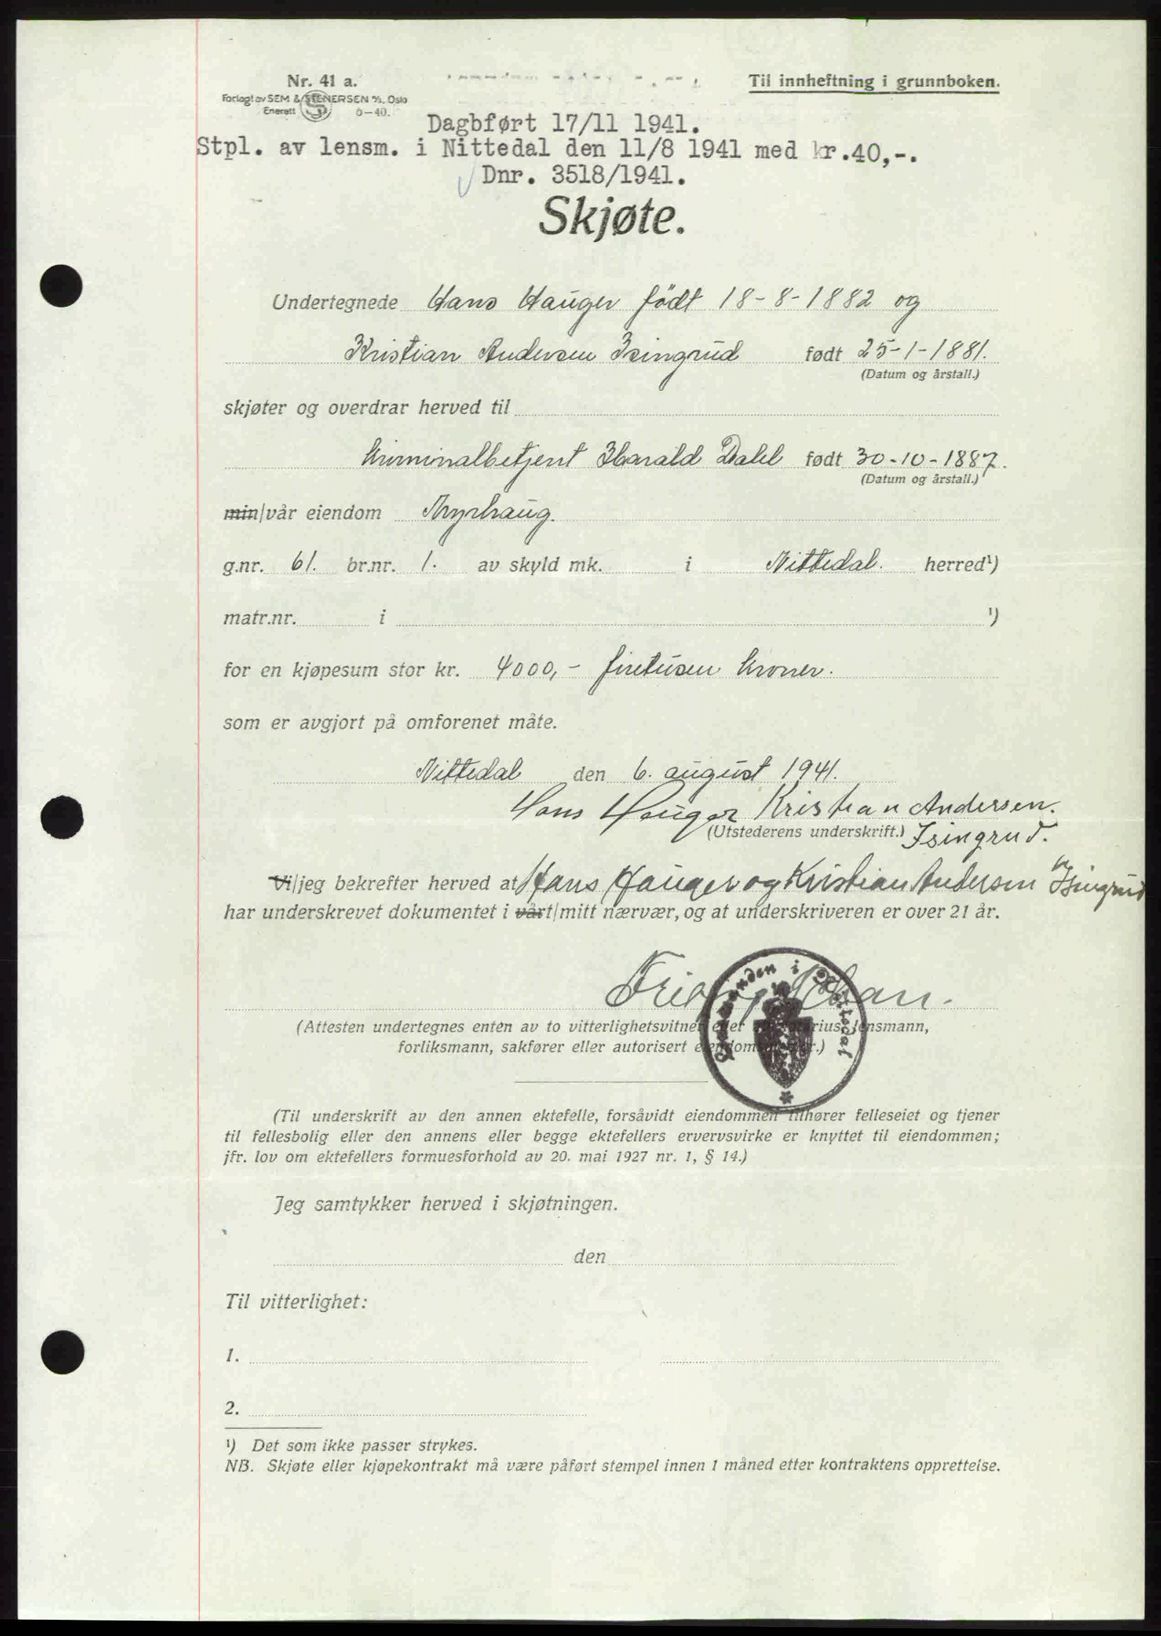 Nr. 41 a.
Til innheftning i grunnboken.
Forlagt av SEM & STENERSEN A/S. Oslo
Enerett 6-40.
Dagbført 17/11 1941.
Stpl. av lensm. i Nittedal den 11/8 1941 med kr.40,-.
Dnr. 3518/1941.
Skjøte.
Undertegnede Hans Hauger født 18-8-1882 og
Kristian Andersen Isingrud født 25-1-1881.
(Datum og årstall.)
skjøter og overdrar herved til
Kriminalbetjent Harald Dahl født 30-10-1887.
(Datum og årstall.)
min/vår eiendom Myrhaug.
g.nr. 61. br.nr. 1. av skyld mk. i Nittedal. herred¹)
matr.nr. i ¹)
for en kjøpesum stor kr. 4000,- firetusen kroner.
som er avgjort på omforenet måte.
Nittedal den 6. august 1941.
Hans Hauger Kristian Andersen.
(Utstederens underskrift.) Isingrud.
Vi/jeg bekrefter herved at Hans Hauger og Kristian Andersen Isingrud
har underskrevet dokumentet i vårt/mitt nærvær, og at underskriveren er over 21 år.
(Attesten undertegnes enten av to vitterlighetsvitner eller lensmann,
forliksmann, sakfører eller autorisert
i Nittedal
(Til underskrift av den annen ektefelle, forsåvidt eiendommen tilhører felleseiet og tjener
til fellesbolig eller den annens eller begge ektefellers ervervsvirke er knyttet til eiendommen;
jfr. lov om ektefellers formuesforhold av 20. mai 1927 nr. 1, § 14.)
Jeg samtykker herved i skjøtningen.
den
Til vitterlighet:
1.
2.
¹) Det som ikke passer strykes.
NB. Skjøte eller kjøpekontrakt må være påført stempel innen 1 måned etter kontraktens opprettelse.